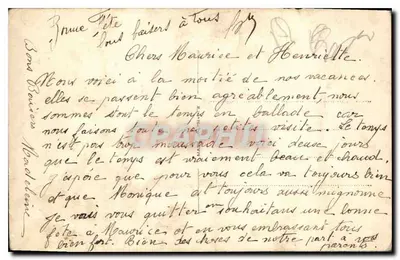 Bonne Fête
bons baisers à tous
Chers Maurice et Henriette
Nous voici à la moitié de nos vacances.
elles se passent bien agréablement, nous
sommes tout le temps en ballade car
nous faisons tous petits visite. Le temps
n'est pas trop maussade voici deux jours
que le temps est vraiement beau et chaud.
J'espère que pour vous cela va toujours bien
et que Monique est toujours aussi mignonne
je vais vous quitter en souhaitans une bonne
fête à Maurice et en vous embrassant tous
bien fort. Bien des choses de notre part à vos
parents.
Bons Baisers Madeleine
CPARAMA